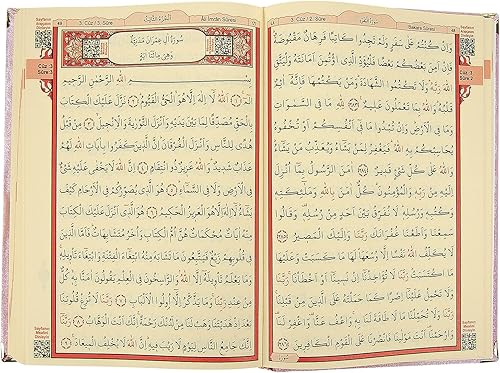 3. Cüz / 2. Sûre
Bakara Sûresi
وَإِنْ كُنْتُمْ عَلَى سَفَرٍ وَلَمْ تَجِدُوا كَاتِبًا فَرِهَانٌ مَقْبُوضَةٌ
فَإِنْ أَمِنَ بَعْضُكُمْ بَعْضًا فَلْيُؤَدِّ الَّذِي اؤْتُمِنَ أَمَانَتَهُ وَلْيَتَّقِ
اللهَ رَبَّهُ وَلَا تَكْتُمُوا الشَّهَادَةَ وَمَنْ يَكْتُمْهَا فَإِنَّهُ آثِمٌ
قَلْبُهُ وَاللهُ بِمَا تَعْمَلُونَ عَلِيمٌ ﴿٢٨٣﴾ لِلهِ مَا فِي السَّمَوَاتِ
وَمَا فِي الْأَرْضِ وَإِنْ تُبْدُوا مَا فِي أَنْفُسِكُمْ أَوْ تُخْفُوهُ
يُحَاسِبْكُمْ بِهِ اللهُ فَيَغْفِرُ لِمَنْ يَشَاءُ وَيُعَذِّبُ مَنْ يَشَاءُ
وَاللهُ عَلَى كُلِّ شَيْءٍ قَدِيرٌ ﴿٢٨٤﴾ آمَنَ الرَّسُولُ بِمَا أُنْزِلَ
إِلَيْهِ مِنْ رَبِّهِ وَالْمُؤْمِنُونَ كُلٌّ آمَنَ بِاللهِ وَمَلَئِكَتِهِ
وَكُتُبِهِ وَرُسُلِهِ لَا نُفَرِّقُ بَيْنَ أَحَدٍ مِنْ رُسُلِهِ وَقَالُوا
سَمِعْنَا وَأَطَعْنَا غُفْرَانَكَ رَبَّنَا وَإِلَيْكَ الْمَصِيرُ ﴿٢٨٥﴾
لَا يُكَلِّفُ اللهُ نَفْسًا إِلَّا وُسْعَهَا لَهَا مَا كَسَبَتْ وَعَلَيْهَا
مَا اكْتَسَبَتْ رَبَّنَا لَا تُؤَاخِذْنَا إِنْ نَسِينَا أَوْ أَخْطَأْنَا رَبَّنَا
وَلَا تَحْمِلْ عَلَيْنَا إِصْرًا كَمَا حَمَلْتَهُ عَلَى الَّذِينَ مِنْ قَبْلِنَا
رَبَّنَا وَلَا تُحَمِّلْنَا مَا لَا طَاقَةَ لَنَا بِهِ وَاعْفُ عَنَّا وَاغْفِرْ لَنَا
وَارْحَمْنَا أَنْتَ مَوْلَينَا فَانْصُرْنَا عَلَى الْقَوْمِ الْكَافِرِينَ ﴿٢٨٦﴾
3. Cüz / 3. Sûre
Âl-i İmrân Sûresi
سُورَةُ آلِ عِمْرَانَ مَدَنِيَّةٌ
وَهِيَ مِائَتَا آيَةٍ
بِسْمِ اللهِ الرَّحْمٰنِ الرَّحِيمِ
الم ﴿١﴾ اللهُ لَا إِلَهَ إِلَّا هُوَ الْحَيُّ الْقَيُّومُ ﴿٢﴾ نَزَّلَ عَلَيْكَ الْكِتَابَ
بِالْحَقِّ مُصَدِّقًا لِمَا بَيْنَ يَدَيْهِ وَأَنْزَلَ التَّوْرَيةَ وَالْإِنْجِيلَ ﴿٣﴾ مِنْ قَبْلُ
هُدًى لِلنَّاسِ وَأَنْزَلَ الْفُرْقَانَ إِنَّ الَّذِينَ كَفَرُوا بِآيَاتِ اللهِ لَهُمْ
عَذَابٌ شَدِيدٌ وَاللهُ عَزِيزٌ ذُو انْتِقَامٍ ﴿٤﴾ إِنَّ اللهَ لَا يَخْفَى عَلَيْهِ شَيْءٌ
فِي الْأَرْضِ وَلَا فِي السَّمَاءِ ﴿٥﴾ هُوَ الَّذِي يُصَوِّرُكُمْ فِي الْأَرْحَامِ كَيْفَ
يَشَاءُ لَا إِلَهَ إِلَّا هُوَ الْعَزِيزُ الْحَكِيمُ ﴿٦﴾ هُوَ الَّذِي أَنْزَلَ عَلَيْكَ الْكِتَابَ
مِنْهُ آيَاتٌ مُحْكَمَاتٌ هُنَّ أُمُّ الْكِتَابِ وَأُخَرُ مُتَشَابِهَاتٌ فَأَمَّا الَّذِينَ
فِي قُلُوبِهِمْ زَيْغٌ فَيَتَّبِعُونَ مَا تَشَابَهَ مِنْهُ ابْتِغَاءَ الْفِتْنَةِ وَابْتِغَاءَ تَأْوِيلِهِ
وَمَا يَعْلَمُ تَأْوِيلَهُ إِلَّا اللهُ وَالرَّاسِخُونَ فِي الْعِلْمِ يَقُولُونَ آمَنَّا بِهِ كُلٌّ
مِنْ عِنْدِ رَبِّنَا وَمَا يَذَّكَّرُ إِلَّا أُولُوا الْأَلْبَابِ ﴿٧﴾ رَبَّنَا لَا تُزِغْ قُلُوبَنَا
بَعْدَ إِذْ هَدَيْتَنَا وَهَبْ لَنَا مِنْ لَدُنْكَ رَحْمَةً إِنَّكَ أَنْتَ الْوَهَّابُ ﴿٨﴾ رَبَّنَا
إِنَّكَ جَامِعُ النَّاسِ لِيَوْمٍ لَا رَيْبَ فِيهِ إِنَّ اللهَ لَا يُخْلِفُ الْمِيعَادَ ﴿٩﴾